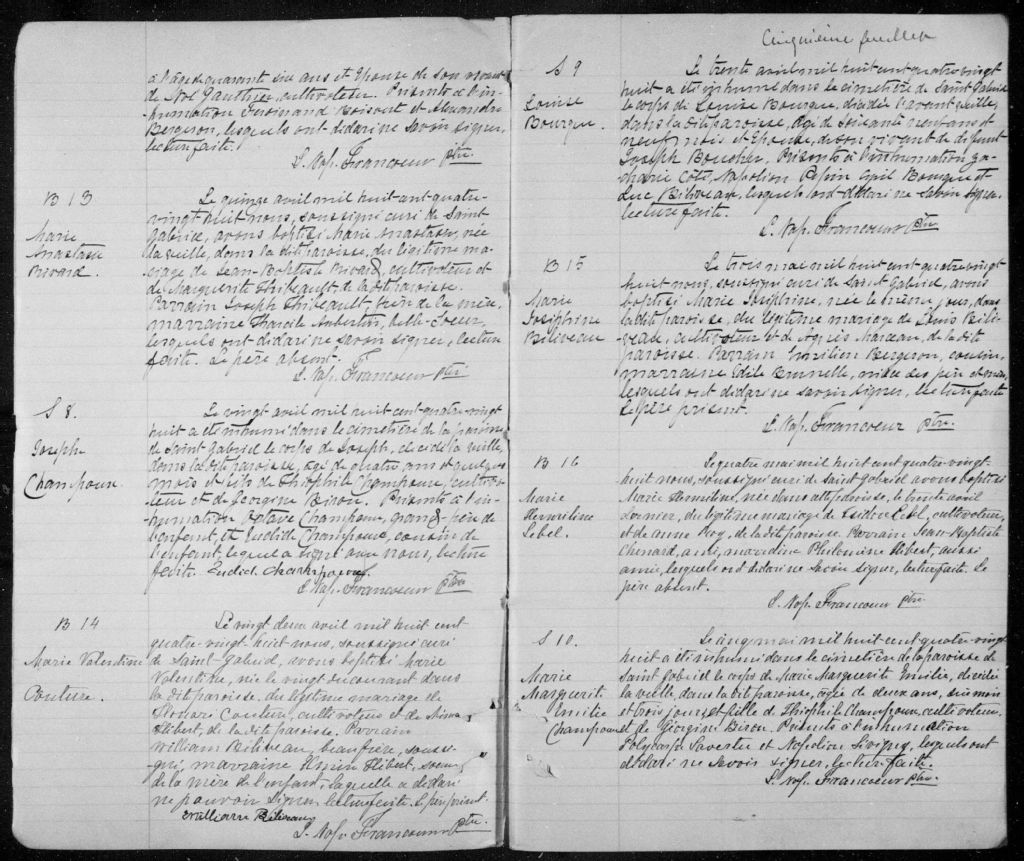 à l'âge de quarante six ans et Epouse de son vivant
de Noé Gauthier, cultivateur. Présents à l'in-
humation Ferdinand Boisvert et Alexandre
Bergeron, lesquels ont déclaré ne savoir signer,
lecture faite.
L. Nap. Francoeur Ptre
B 13
Marie
Anastasie
Rivard.
Le quinze avril mil huit cent quatre-
vingt huit nous, soussigné curé de Saint
Gabriel, avons baptisé Marie Anastasie, née
la veille, dans la dite paroisse, du légitime ma-
riage de Jean-Baptiste Rivard, cultivateur et
de Marguerite Thibeault de la dite paroisse.
Parrain Joseph Thibeault, frère de la mère,
marraine Aubertin, belle-soeur,
lesquels ont déclaré ne savoir signer, lecture
faite. Le père absent.
L. Nap. Francoeur Ptre
S 8.
Joseph
Champoux.
Le vingt avril mil huit cent quatre-vingt
huit a été inhumé dans le cimetière de la paroisse
de Saint Gabriel le corps de Joseph, décédé la veille,
dans la dite paroisse, âgé de quatre ans et quelques
mois et fils de Théophile Champoux, cultiva-
teur et de Georgine Biron. Présents à l'in-
humation Octave Champoux, grand-père de
l'enfant, et Euclide Champoux, cousin de
l'enfant, lequel a signé avec nous, lecture
faite. Euclid. Champoux
L. Nap. Francoeur Ptre
B 14
Marie Valentine
Couture.
Le vingt deux avril mil huit cent
quatre-vingt-huit nous, soussigné curé
de Saint-Gabriel, avons baptisé Marie
Valentine, née le vingt du courant dans
la dite paroisse. du légitime mariage de
Honoré Couture, cultivateur et de
Hébert, de la dite paroisse. Parrain
William Béliveau, beaufrère, soussi-
gné, marraine Hébert, soeur
de la mère de l'enfant, laquelle a déclaré
ne pouvoir signer, lecture faite. Le père présent.
William Béliveau
L. Nap. Francoeur Ptre
Cinquième feuillet
S 9
Louise
Bourque.
Le trente avril mil huit cent quatre-vingt
huit a été inhumé dans le cimetière de Saint Gabriel
le corps de Louise Bourque, décédée l'avant veille,
dans la dite paroisse, âgé de soixante neuf ans et
neuf mois et Epouse, de son vivant de défunt
Joseph Boucher. Présents à l'inhumation Za-
charie Côté, Napoléon Pépin Bourque et
Luc Béliveau, lesquels ont déclaré ne savoir signer.
lecture faite.
L. Nap. Francoeur Ptre
B 15
Marie
Joséphine
Béliveau
Le trois mai mil huit cent quatre-vingt
huit nous, soussigné curé de Saint Gabriel, avons
baptisé Marie Joséphine, née le même jour, dans
la dite paroisse, du légitime mariage de Louis Béli-
veau, cultivateur et de Agnès Marceau, de la dite
paroisse. Parrain Emilien Bergeron, cousin,
marraine Edile Brunelle, nièce des père et mère,
lesquels ont déclaré ne savoir signer, lecture faite
Le père présent.
L. Nap. Francoeur Ptre.
B 16
Marie
Hermiline
Lebel.
Le quatre mai mil huit cent quatre-vingt-
huit nous, soussigné curé de Saint Gabriel avons baptisé
Marie Hermiline, née dans cette paroisse, le trente avril
dernier, du légitime mariage de Isidore Lebel, cultivateur,
et de Anne Roy, de la dite paroisse. Parrain Jean-Baptiste
Chenard, ami, marraine Philomine Hébert, aussi
amie, lesquels ont déclaré ne savoir signer, lecture faite. Le
père absent.
L. Nap. Francoeur Ptre
S 10.
Marie
Marguerite
Emilie
Champoux
Le cinq mai mil huit cent quatre-vingt
huit a été inhumé dans le cimetière de la paroisse de
Saint Gabriel le corps de Marie Marguerite Emilie, décédée
la veille dans la dite paroisse, âgée de deux ans, six mois
et trois jours, et fille de Théophile Champoux, cultivateur
et de Georgine Biron. Présents à l'inhumation
Polycarpe Savestre et Napoléon Sévigny, lesquels ont
déclaré ne savoir signer, lecture faite.
L. Nap. Francoeur Ptre